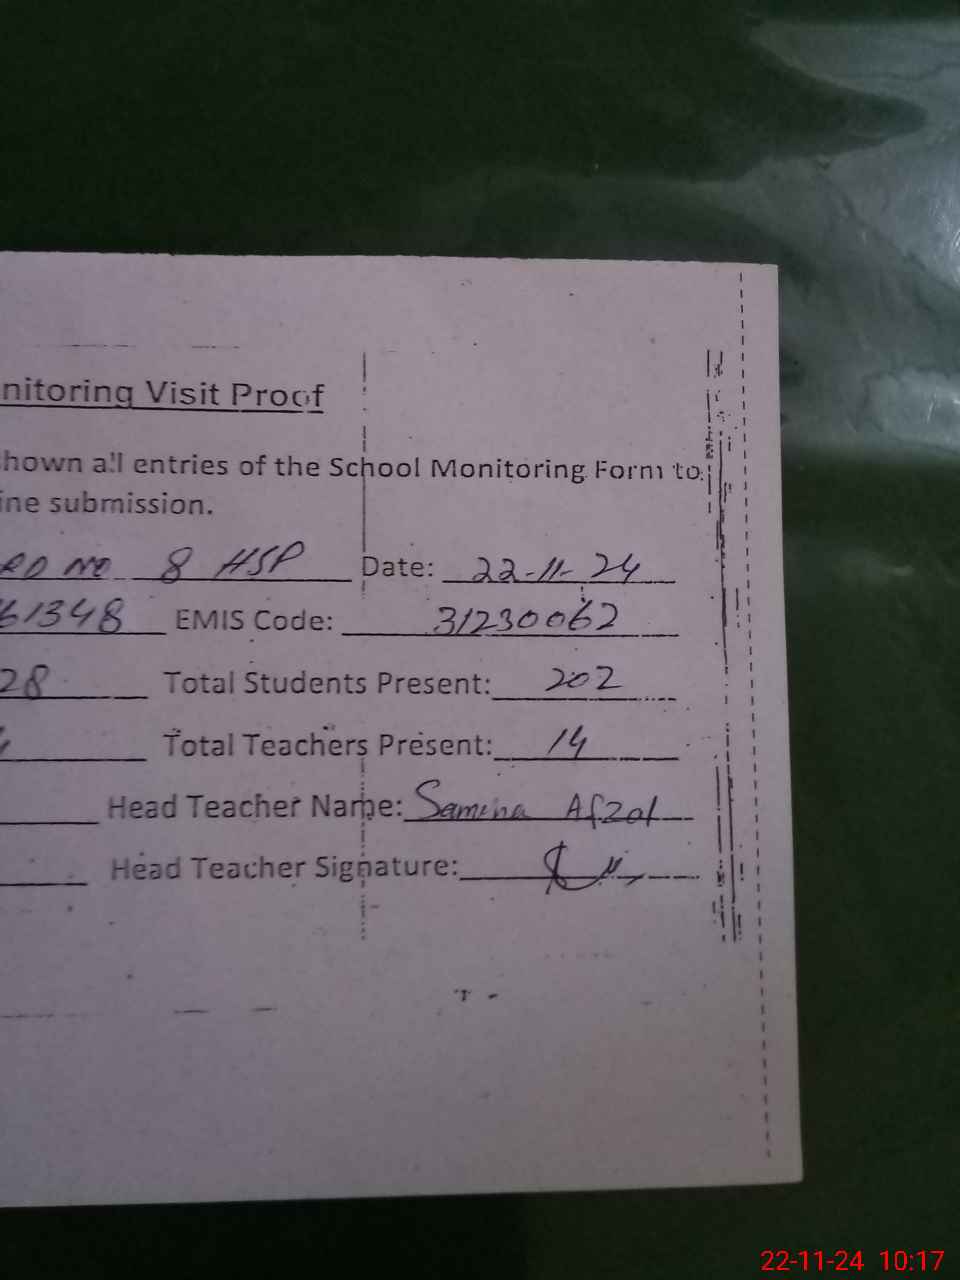 nitoring Visit Proof
hown all entries of the School Monitoring Form to
ine submission.
RD NO 8 HSP Date: 22-11-24
61348 EMIS Code: 31230062
28 Total Students Present: 202
Total Teachers Present: 14
Head Teacher Name: Samina Afzal
Head Teacher Signature:
22-11-24 10:17